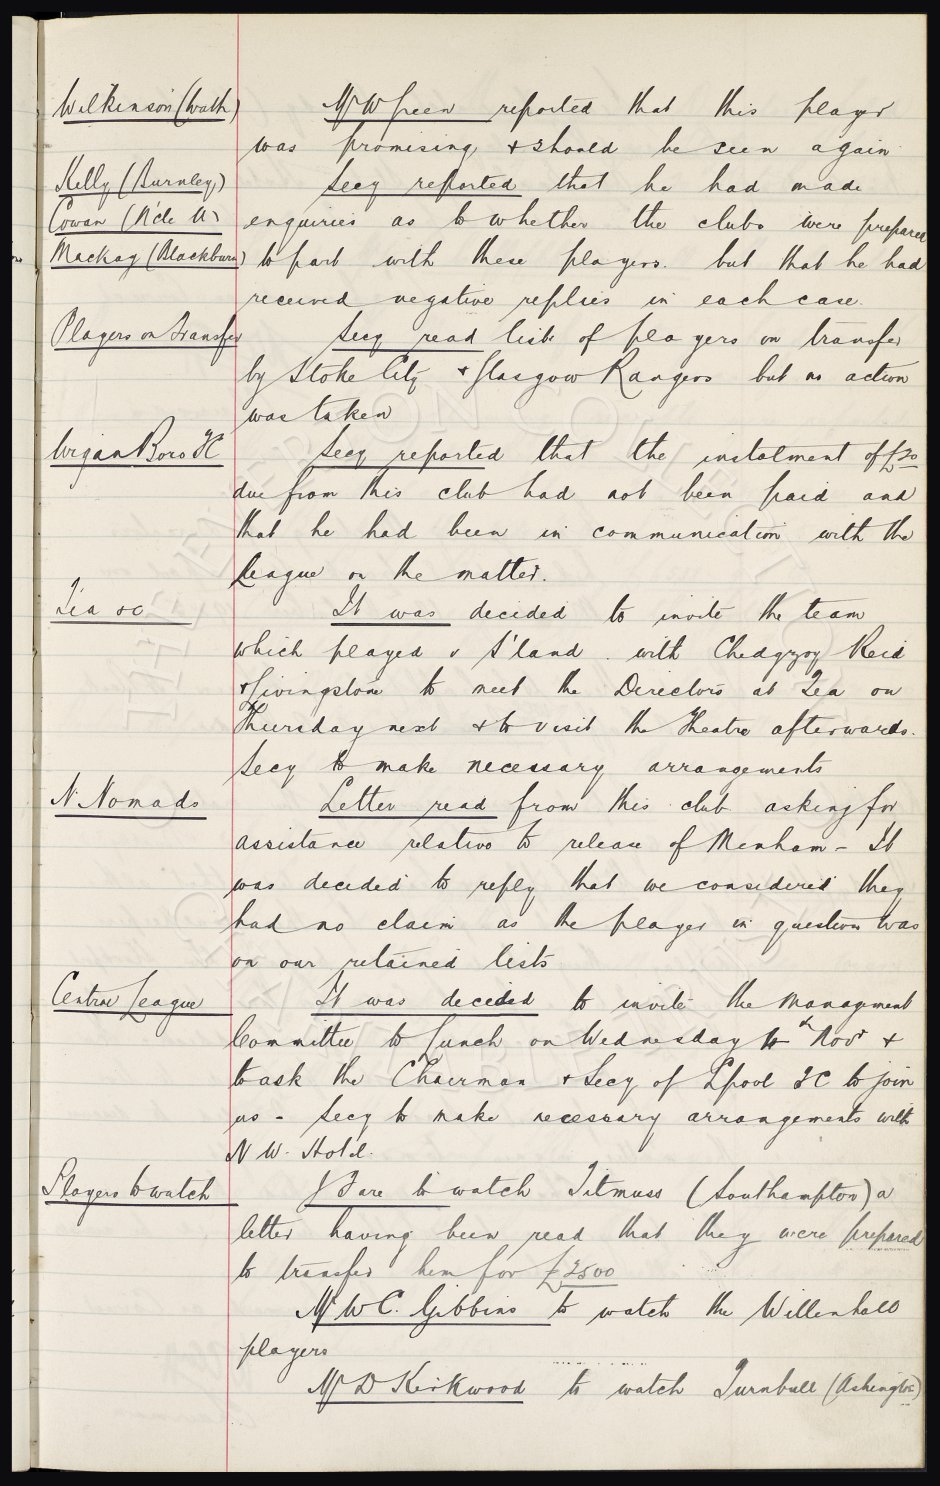 Wilkinson (Wath)
Mr W Green reported that this player
was promising & should be seen again
Kelly (Burnley)
Secy reported that he had made
Cowan (N'cle U)
enquiries as to whether the clubs were prepared
Mackay (Blackburn)
to part with these players. but that he had
received negative replies in each case.
Players on Transfer
Secy read lists of players on transfer
by Stoke City & Glasgow Rangers but no action
was taken
Wigan Boro FC
Secy reported that the instalment of £20
due from this club had not been paid and
that he had been in communication with the
League on the matter.
Tea &c
It was decided to invite the team
which played v S'land. with Chedgzoy Reid
& Livingstone to meet the Directors at Tea on
Thursday next & to visit the Theatre afterwards.
Secy to make necessary arrangements
N. Nomads
Letter read from this club asking for
assistance relative to release of Menham - It
was decided to reply that we considered they
had no claim as the player in question was
on our retained lists
Central League
It was decided to invite the Management
Committee to Lunch on Wednesday th Nov &
to ask the Chairman & Secy of L'pool FC to join
us - Secy to make necessary arrangements with
N W. Hotel.
Players to watch
are to watch Titmuss (Southampton) a
letter having been read that they were prepared
to transfer him for £2500
Mr W C. Gibbins to watch the Willenhall
players
Mr D Kirkwood to watch Turnbull (Ashington)